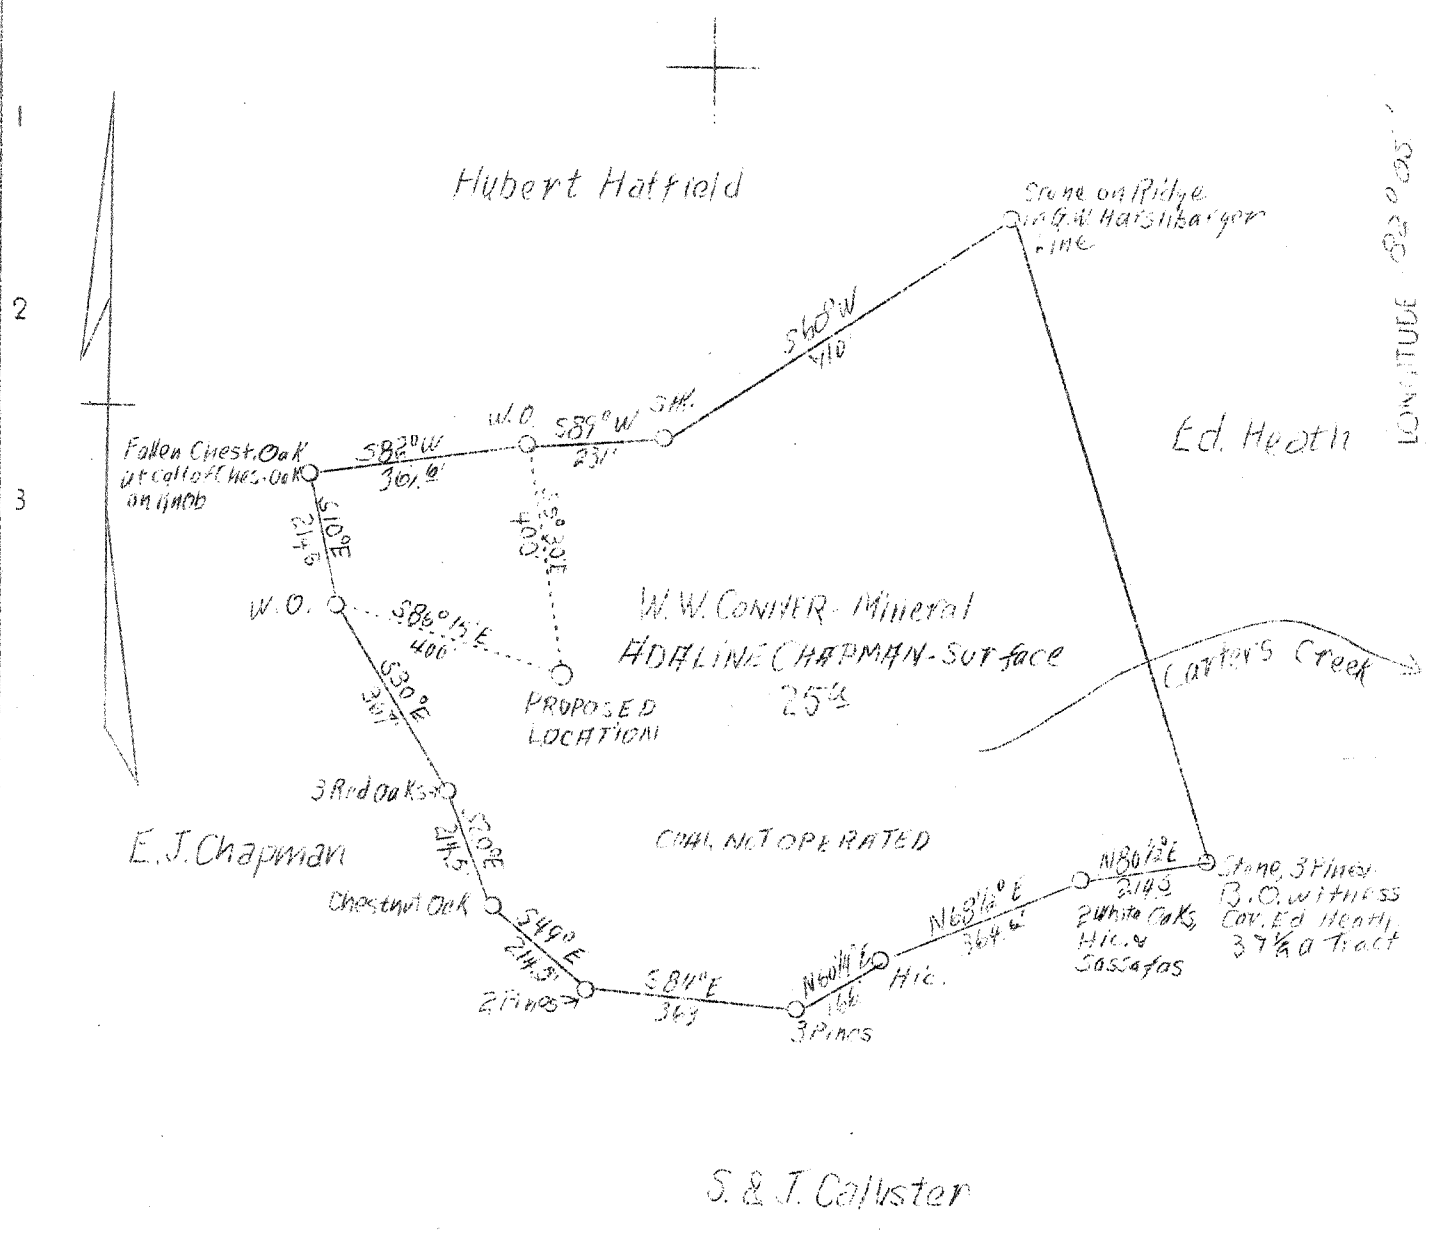 1
2
3
Hubert Hatfield
Stone on Ridge
in G.W. Harshbarger
Line
LONGITUDE 82° 05'
S60°W
710'
Ed. Heath
Fallen Chest. Oak
at call of Ches. Oak
on Knob
S82°W
361.6'
W.O.
S89°W
231'
Stk.
S10°E
214.5
S5°30'E
400'
W.O.
S86°15'E
400'
W.W. CONNER - Mineral
ADALINE CHAPMAN - Surface
25
Carter's Creek
S30°E
PROPOSED
LOCATION
3 Red Oaks
E.J. Chapman
S20°E
214.5
COAL NOT OPERATED
Chestnut Oak
S49°E
214.5'
2 Pines
S84°E
363
3 Pines
N60¼°E
166
Hic.
N68½°E
364.6'
N80½°E
214.5
2 White Oaks,
Hic. &
Sassafas
Stone, 3 Pines
B.O. witness
Cor. Ed Heath,
37½ a Tract
S. & J. Callister